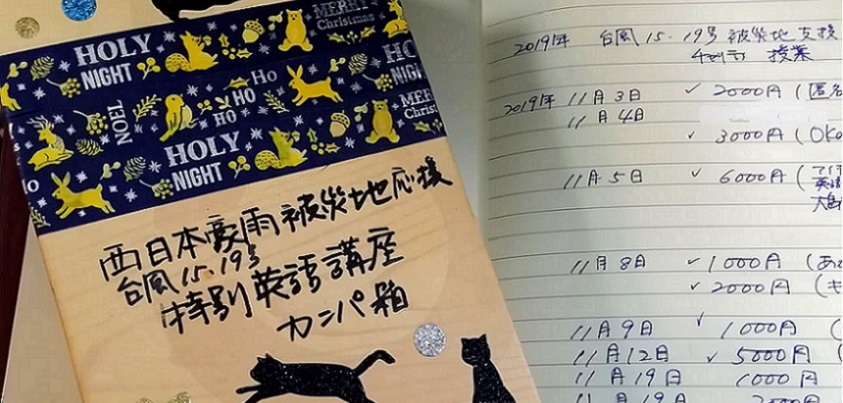 HOLY
NIGHT
MERRY
Christmas
NOEL
Ho
HO
HO
HO
HOLY
NIGHT
MERRY
Christmas
Ho
西日本豪雨被災地応援
台風15.19号
特別英語講座
カンパ箱
2019年 台風15.19号 被災地支援
授業
2019年 11月3日 ✓ 2000円 (匿名
11月4日
✓ 3000円 (
11月5日 ✓ 6000円 (
英語
11月8日 ✓ 1000円 (あ
✓ 2000円 (キ
11月9日 ✓ 1000円 (
11月12日 ✓ 5000円
11月19日 1000円
11月19日